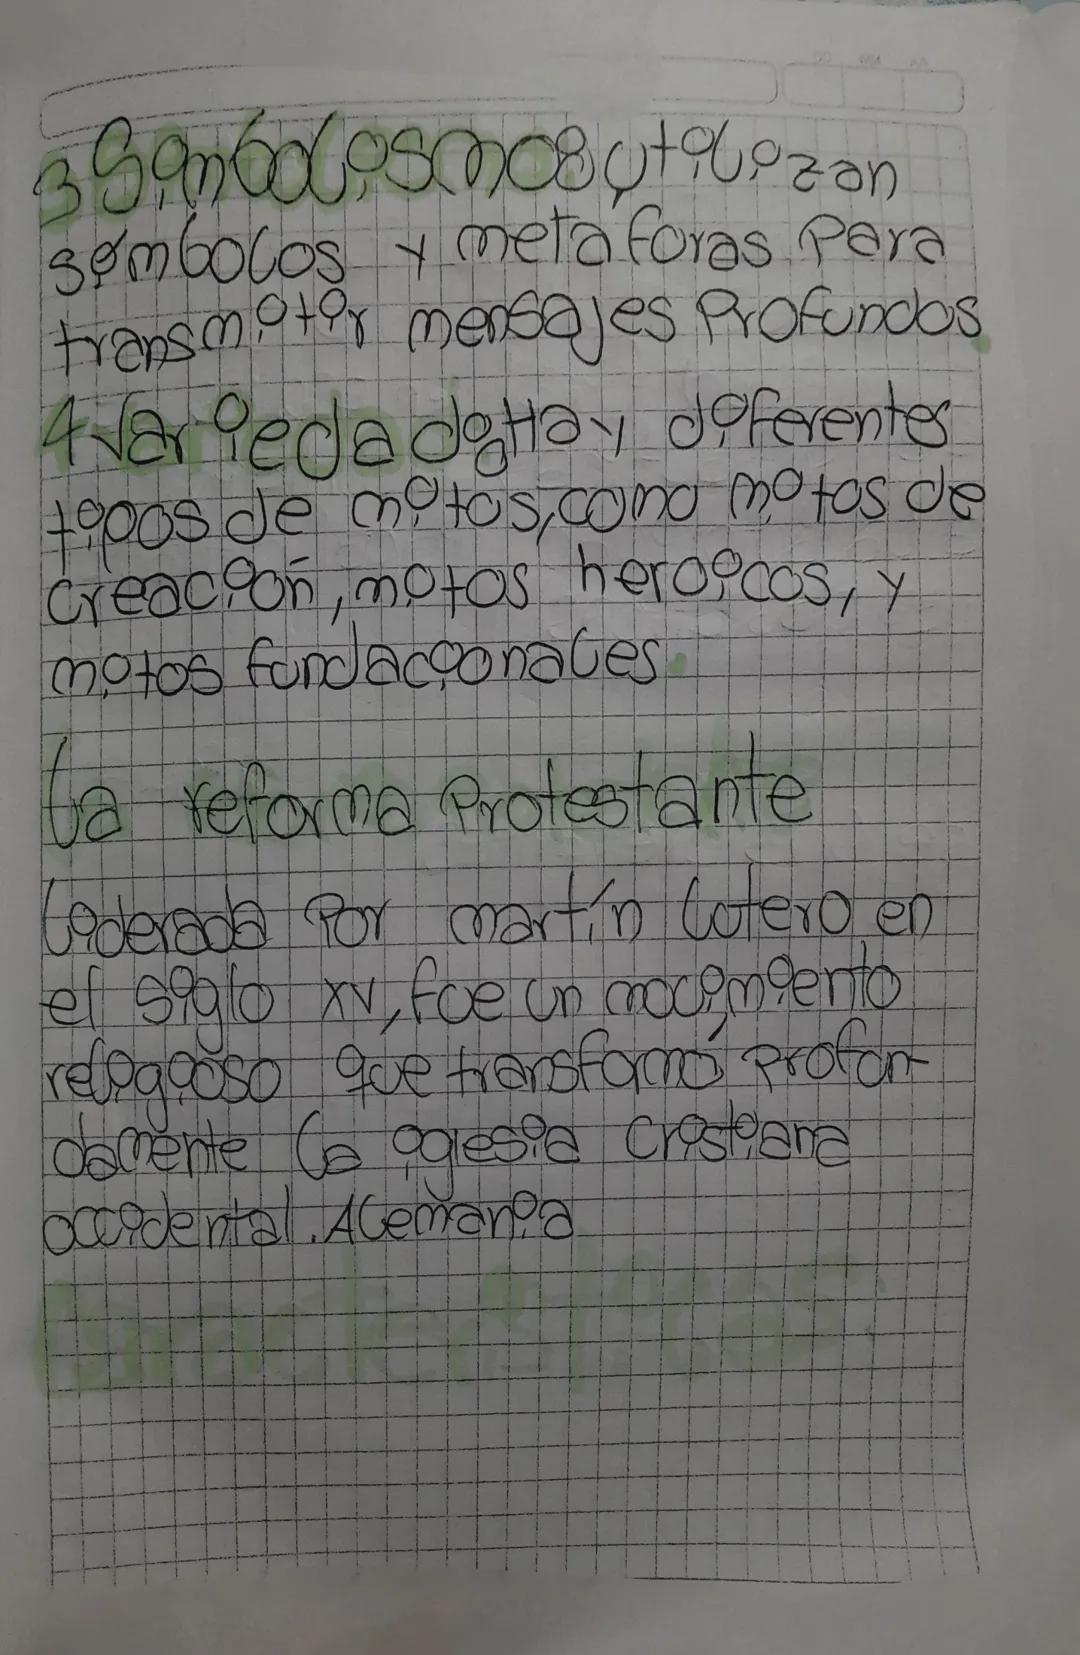 3 Simbolismo: utilizan
simbolos y metaforas Para
transmitir mensajes Profundos.
4 Variedad: Hay diferentes
tipos de mitos, como mitos de
creación, mitos heroicos, y
mitos fundacionales.
La reforma Protestante
Liderada Por martín lutero en
el siglo XV, fue un mocimiento
religioso que transformó profun-
damente la iglesia Cristiana
occidental. Alemania